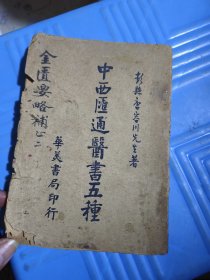 彭縣唐容川先生著
中西匯通醫書五種
金匱要略補正二
華美書局印行